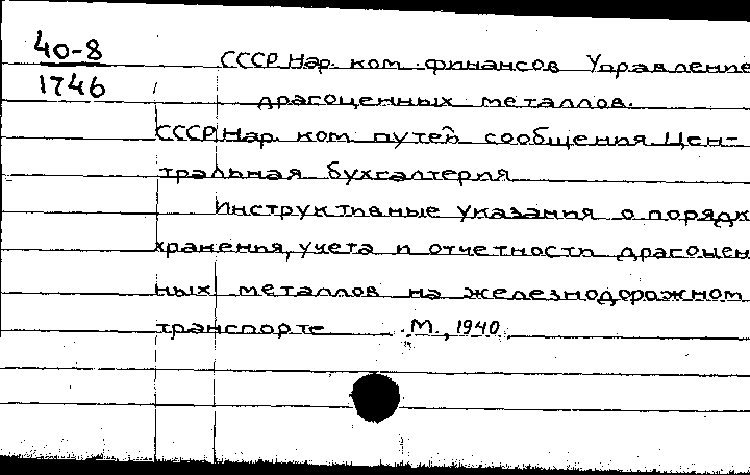 40-8
1746
СССР Нар. ком. финансов Управление
драгоценных металлов.
СССР Нар. ком. путей сообщения. Цен-
тральная бухгалтерия
Инструктивные указания о порядк
хранения, учета и отчетности драгоцен
ных металлов на железнодорожном
транспорте М., 1940.